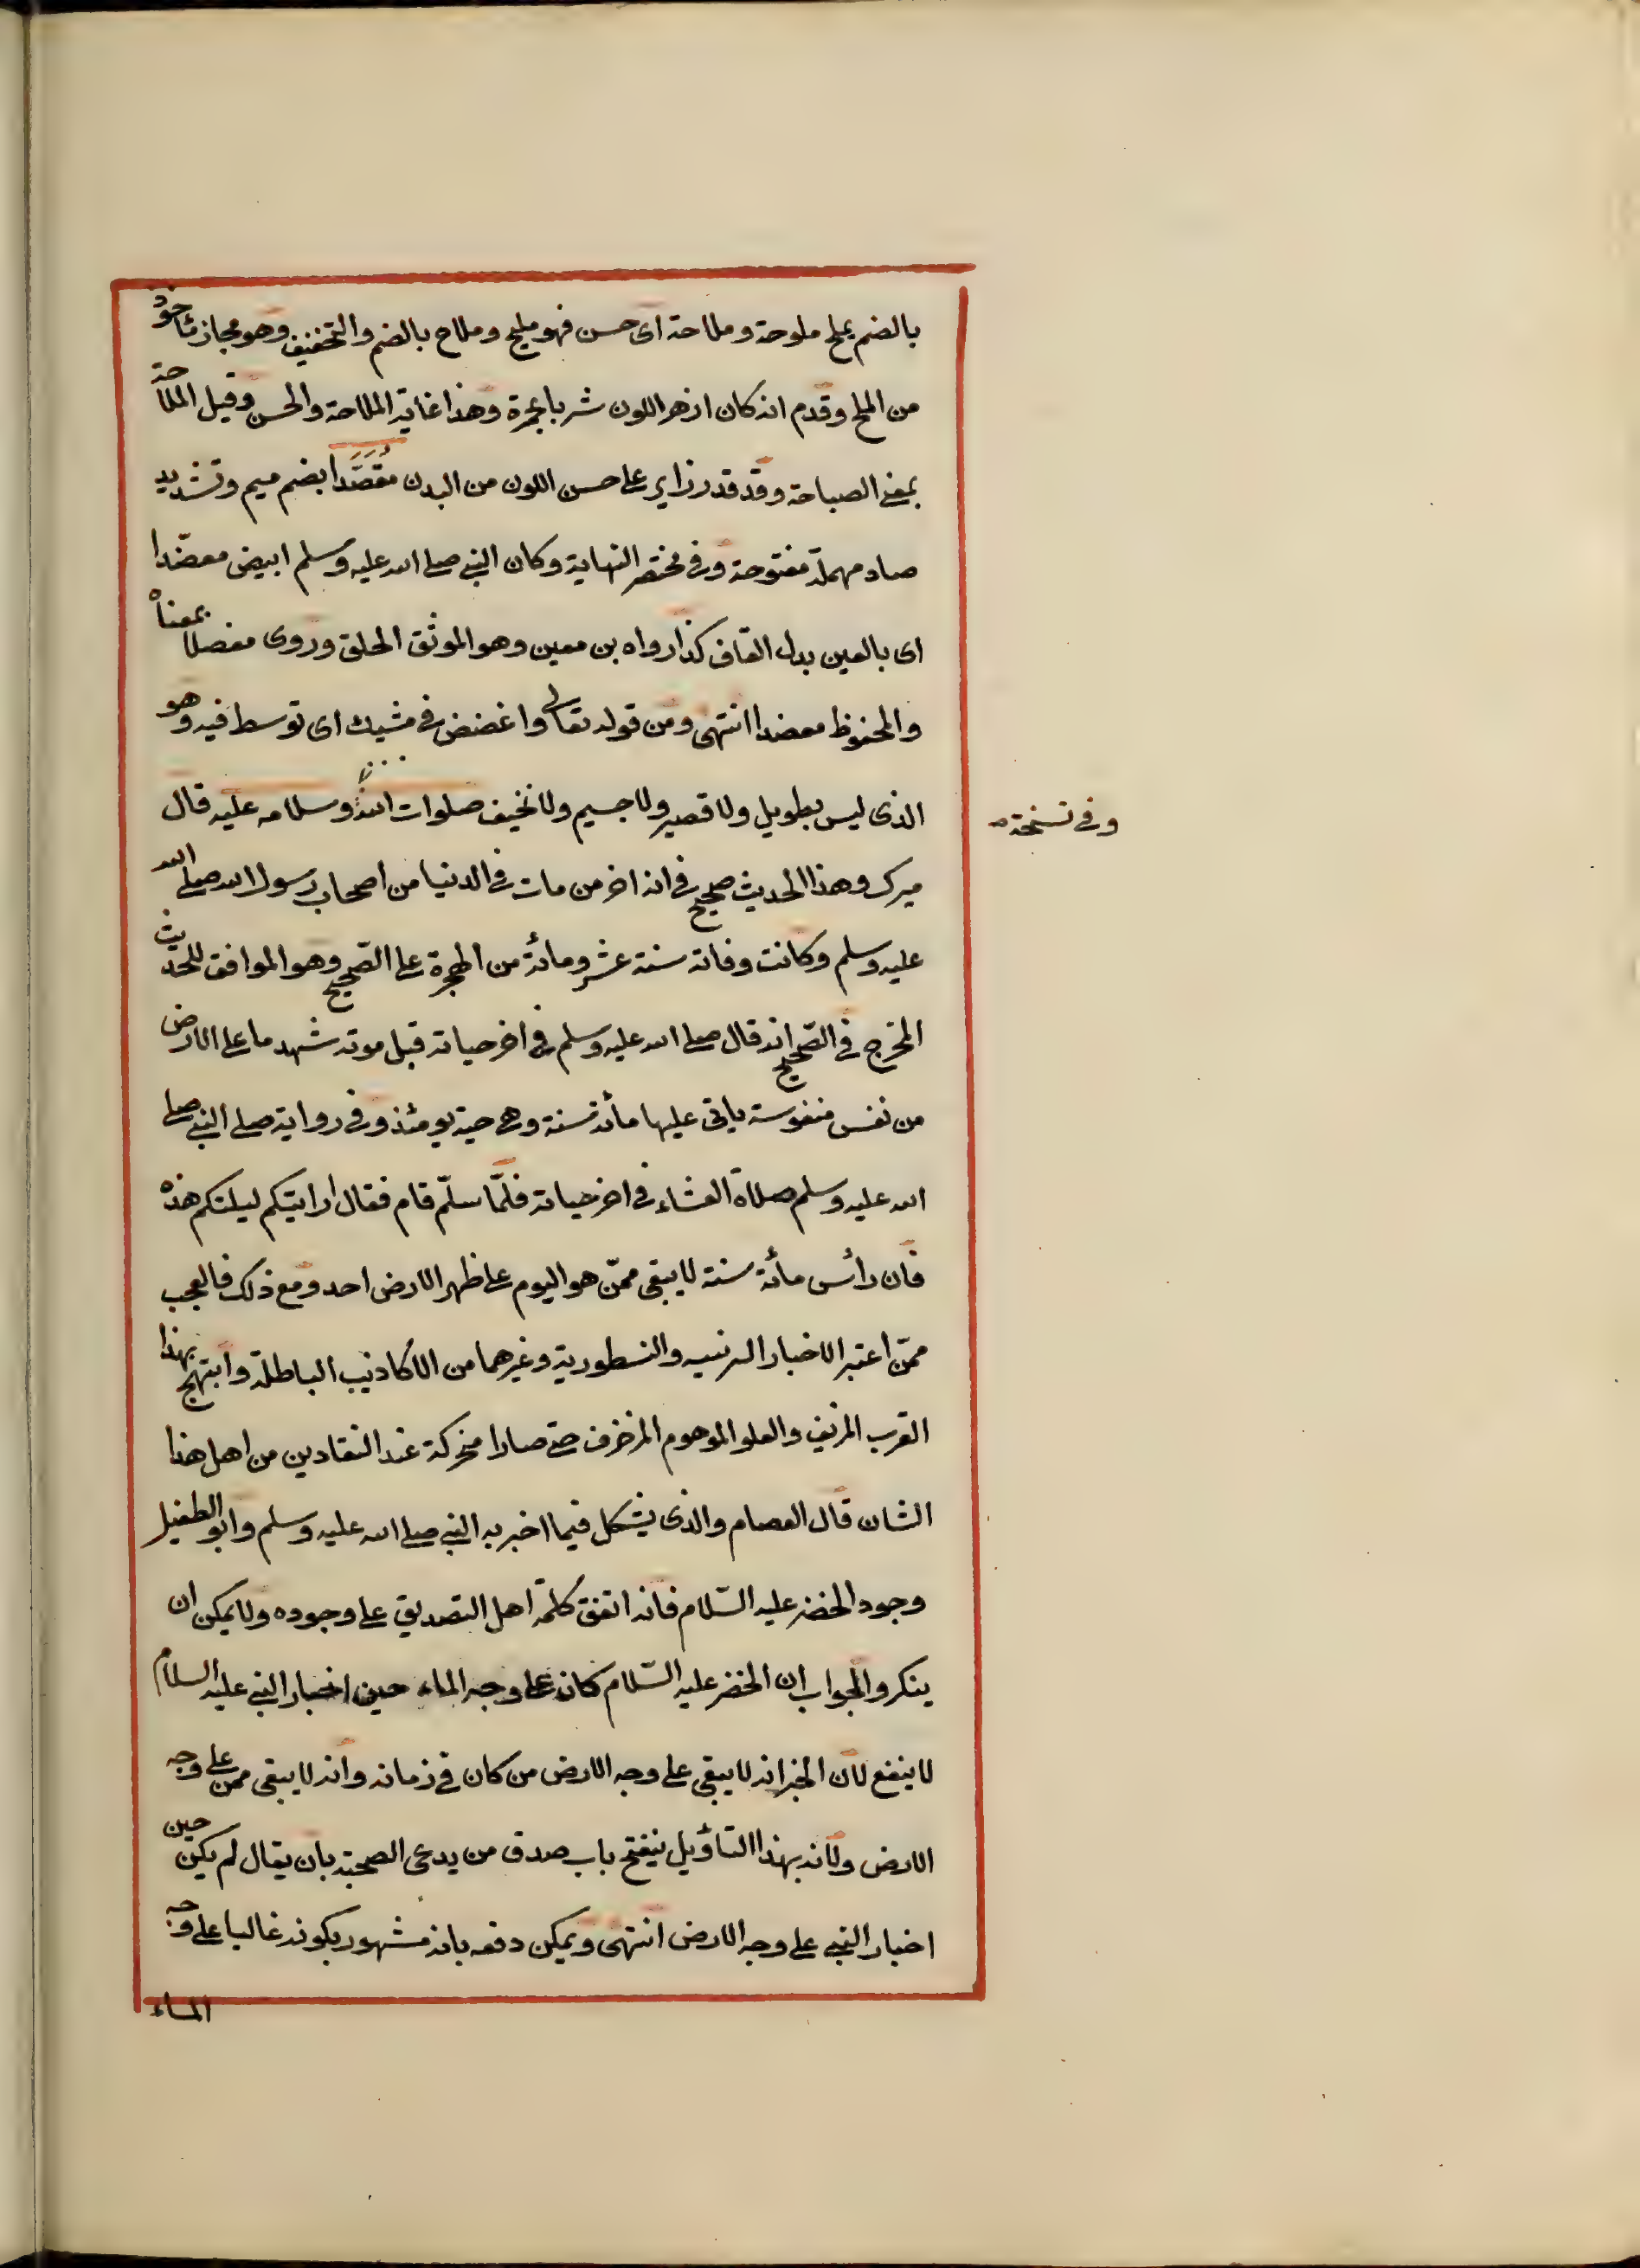 بالضم يملح ملوحة وملاحة اى حسن فهو مليح وملاح بالضم والتخفيف وهو مجاز مأخوذ
من الملح وقدم انه كان ازهر اللون شربا بحمرة وهذا غاية الملاحة والحسن وقيل الملاحة
بمعنى الصباحة وقد قدر زاير على حسن اللون من البدن مُقَصَّدا بضم ميم وتشديد
صاد مهملة مفتوحة وفى مختصر النهاية وكان النبى صلى الله عليه وسلم ابيض معضّدا
اى بالعين بدل القاف كذا رواه بن معين وهو الموثق الحلق وروى مفصلا بمعناه
والمحفوظ معضدا انتهى ومن قوله تعالى واغضض فى مشيك اى توسط فيه وهو
الذى ليس بطويل ولا قصير ولا جسيم ولا نخيف صلوات الله وسلامه عليه قال
وفى نسخة
ميرك وهذا الحديث صحيح فى انه اخر من مات فى الدنيا من اصحاب رسول الله صلى الله
عليه وسلم وكانت وفاته سنة عشر ومائة من الهجرة على الصّحيح وهو الموافق للحديث
المخرج فى الصّحيح انه قال صلى الله عليه وسلم فى اخر حياته قبل موته شهد ما على الارض
من نفس منفوسة ياتى عليها مائة سنة وهى حية يومئذ وفى رواية صلى النبى صلى
الله عليه وسلم صلاة العشاء فى اخر حياته فلمّا سلّم قام فقال ارايتكم ليلتكم هذه
فان رأس مائة سنة لا يبقى ممّن هو اليوم على ظهر الارض احد ومع ذلك فالعجب
ممّن اعتبر الاخبار والنسطورية وغيرهما من الأكاذيب الباطلة وابتهج بهذا
القرب المزيف والعلو الموهوم المزخرف حتى صارا مخركة عند النقادين من اهل هذا
الشان قال العصام والذى يشكل فيما اخبر به النبى صلى الله عليه وسلم وابو الطفيل
وجود الخضر عليه السّلام فانه اتفق كلمة اهل التصديق على وجوده ولا يمكن ان
ينكر والجواب ان الخضر عليه السّلام كان على وجه الماء حين اخبار النبى عليه السلام
لا ينفع لان الخبر انه لا يبقى على وجه الارض من كان فى زمانه وانه لا يبقى ممن على وجه
الارض ولانه بهذا التأويل ينفتح باب صدق من يدعى الصحبة بان يقال لم يكن حين
اخبار النبى على وجه الارض انتهى ويمكن دفعه بانه مشهور بكونه غالبا على وجه
الماء